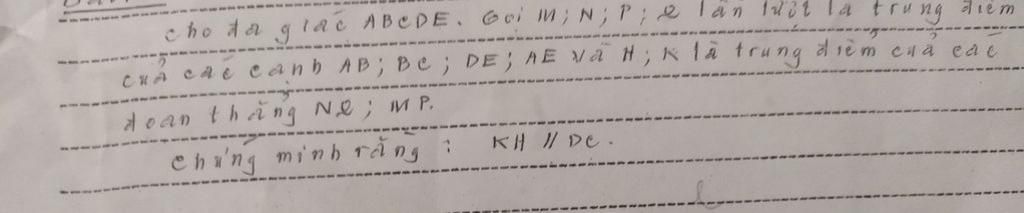 cho đa giác ABCDE. Gọi M; N; P; Q lần lượt là trung điểm
của các cạnh AB; BC; DE; AE và H; K là trung điểm của các
đoạn thẳng NQ; MP.
chứng minh rằng: KH // DC.